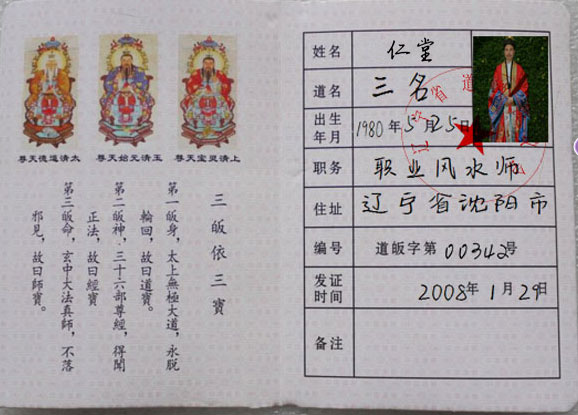 太清道德天尊
玉清元始天尊
上清灵宝天尊
三皈依三寶
第一皈身，太上無極大道，永脱
輪回，故曰道寶。
第二皈神，三十六部尊經，得聞
正法，故曰經寶
第三皈命，玄中大法真師，不落
邪見，故曰師寶。
姓名 仁堂
道名 三名
出生年月 1980年5月25日
职务 职业风水师
住址 辽宁省沈阳市
编号 道皈字第00342号
发证时间 2008年1月29日
备注
省道